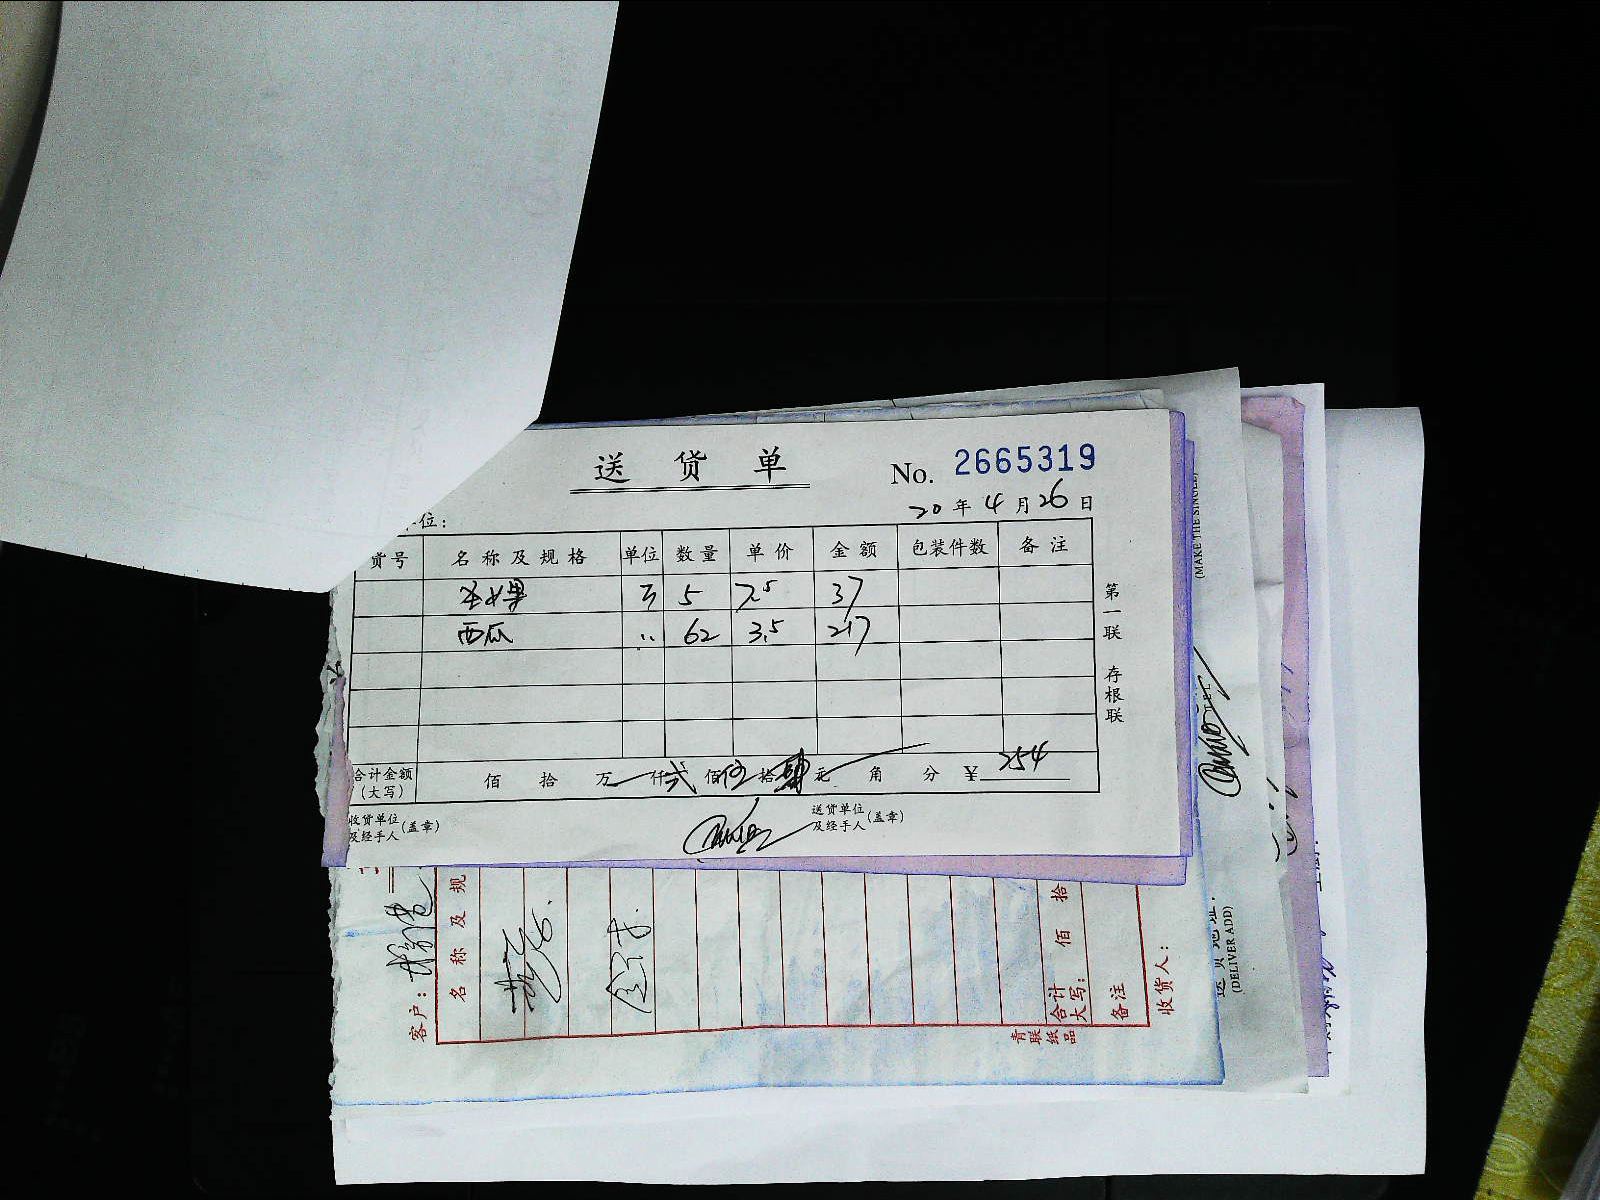 送货单 No. 2665319
20年4月26日
位：
货号 名称及规格 单位 数量 单价 金额 包装件数 备注
圣女果 斤 5 7.5 37
西瓜 〃 62 3.5 217
合计金额（大写） 佰 拾 万 仟 贰 佰 伍 拾 肆 元 角 分 ¥ 254
收货单位及经手人（盖章） 送货单位及经手人（盖章）
第一联 存根联
客户：
名称及规
合计大写： 佰 拾
备注
收货人：
青联纸品
(MAKE THE SINGLE)
送货地址：
(DELIVER ADD)